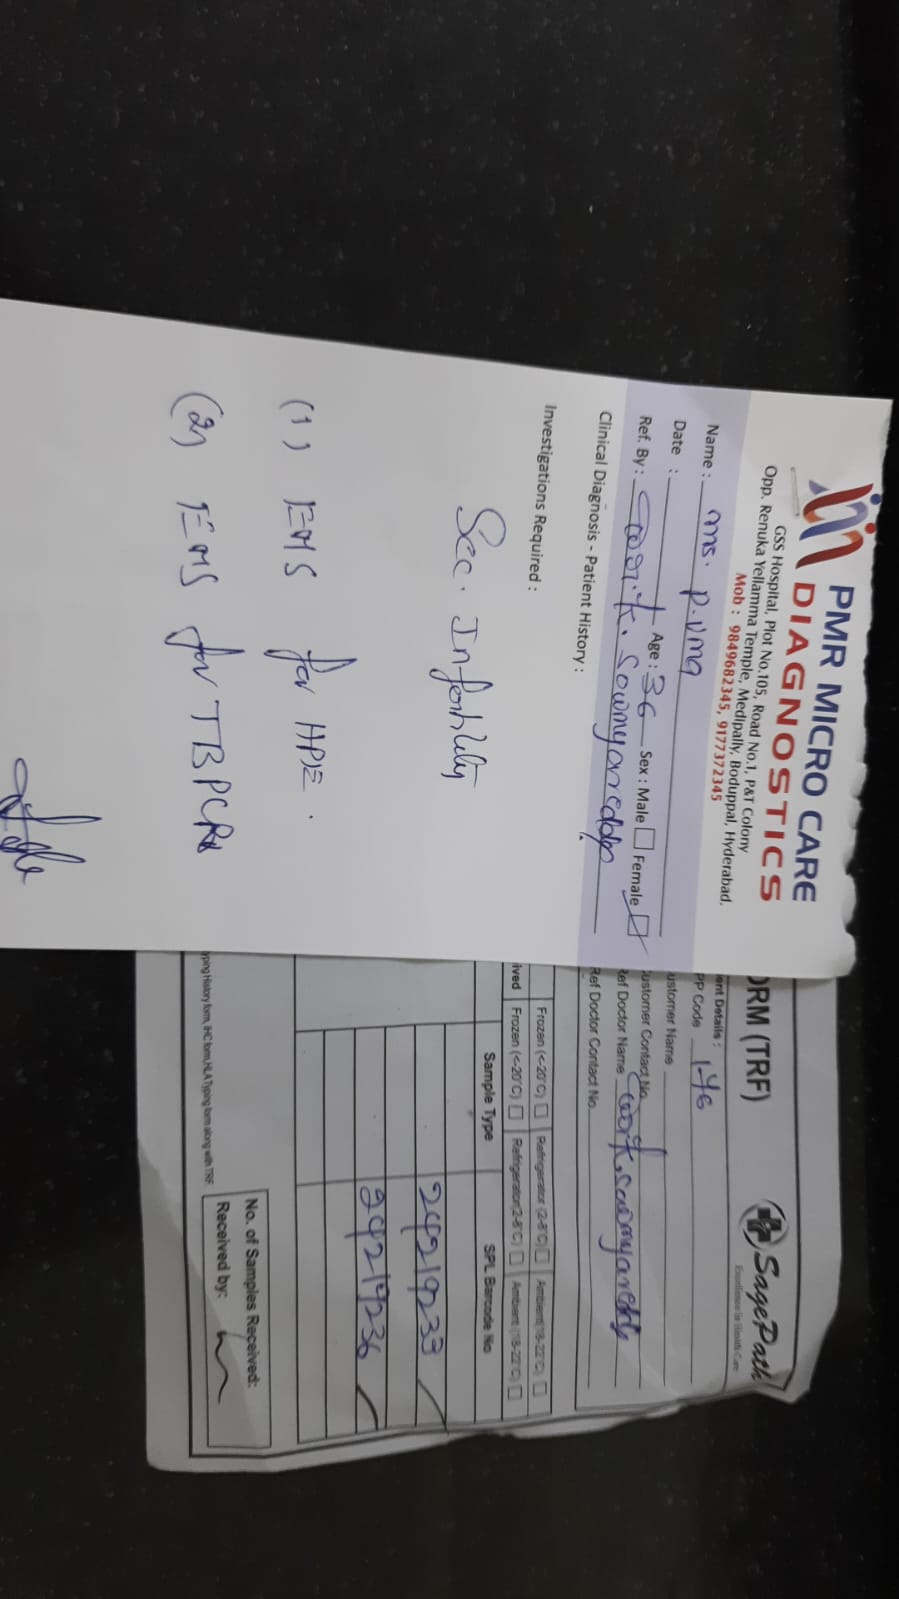 PMR MICRO CARE
DIAGNOSTICS
GSS Hospital, Plot No.105, Road No.1, P&T Colony
Opp. Renuka Yellamma Temple, Medipally, Boduppal, Hyderabad.
Mob : 9849682345, 9177372345
Name : Ms. P. Uma
Date : Age : 36 Sex : Male Female
Ref. By : Sowmyareddy
Clinical Diagnosis - Patient History :
Investigations Required :
Sec. Infertility
(1) EMS for HPE.
(2) EMS for TBPCR
ORM (TRF)
SagePath
Excellence In Health Care
ent Details :
PP Code 146
ustomer Name
ustomer Contact No
Ref Doctor Name Sowmyareddy
Ref Doctor Contact No
Frozen (<-20°C) Refrigerator (2-8°C) Ambient(18-22°C)
ived Frozen (<-20°C) Refrigerator(2-8°C) Ambient (18-22°C)
Sample Type SPL Barcode No
24219233
24219236
yping History form, IHC form, HLA Typing form along with TRF
No. of Samples Received:
Received by: